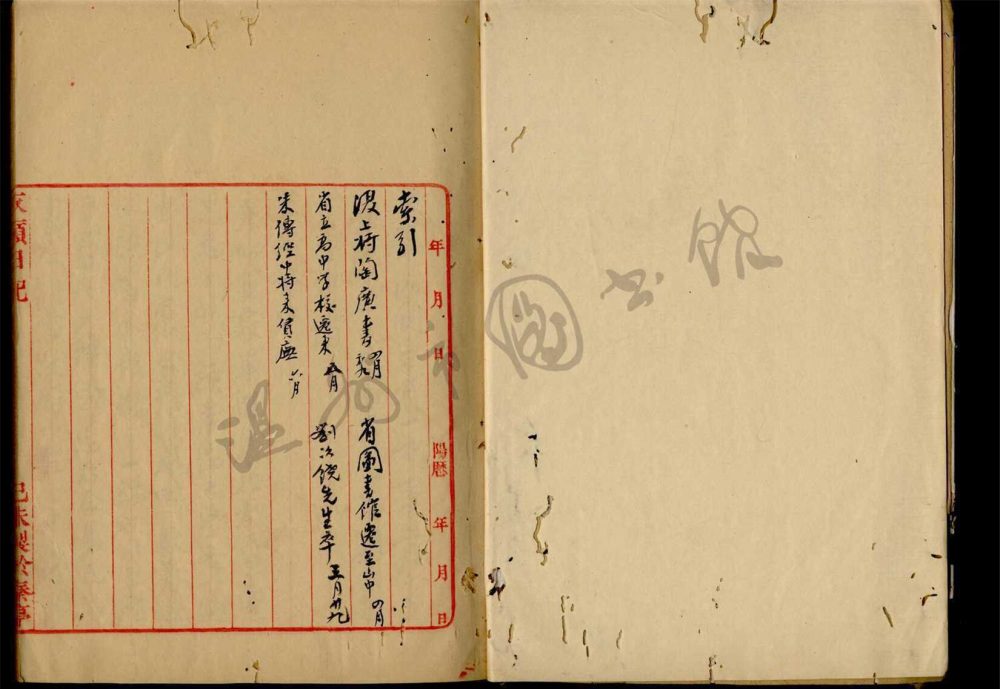 年 月 日 陽曆 年 月 日
索引
上將陶廣書 四月 省圖書館遷至山中 四月
省立高中學校遷來 五月 劉次饒先生卒 五月廿九
朱傳經中將來 六月
日記
己未製於
溫州市圖書館